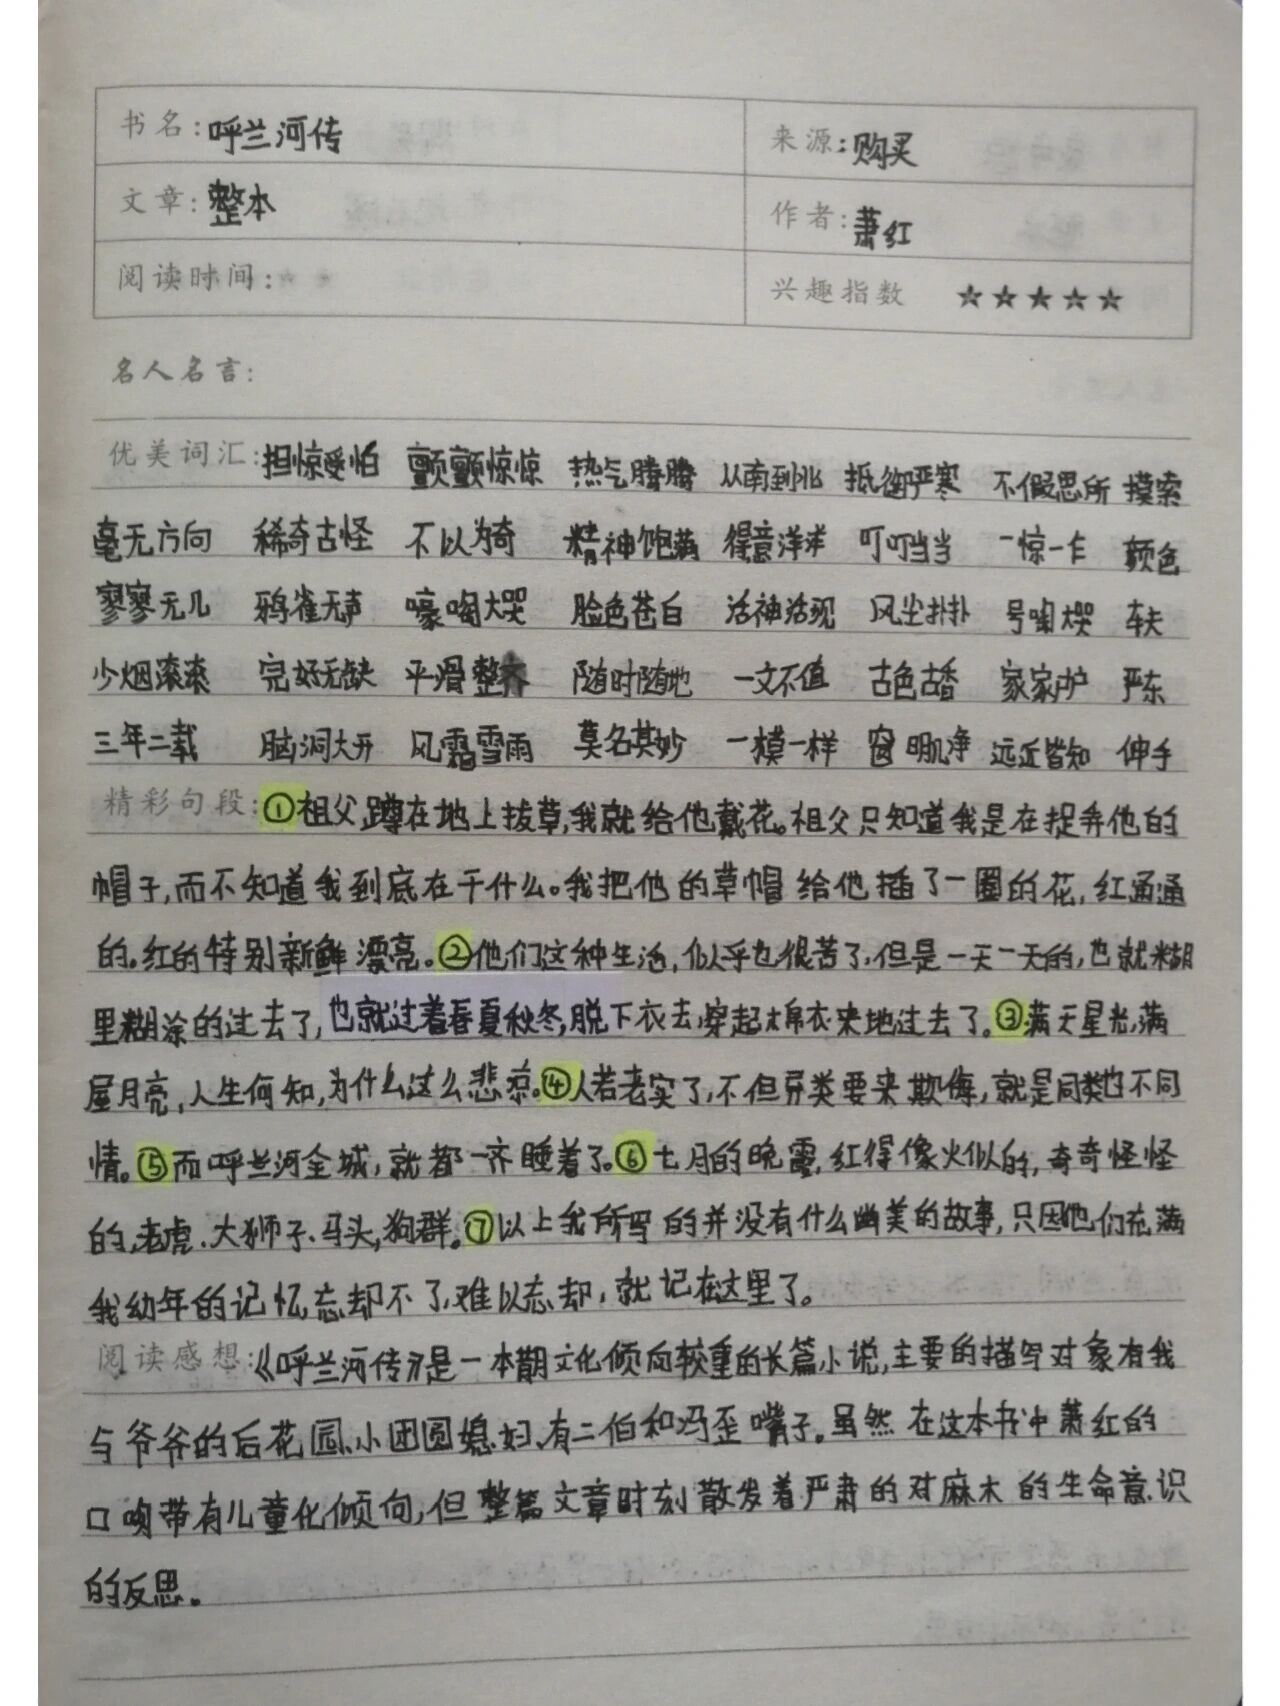 书名:呼兰河传 来源:购买
文章:整本 作者:萧红
阅读时间: 兴趣指数 ☆☆☆☆☆
名人名言:
优美词汇:担惊受怕 颤颤惊惊 热气腾腾 从南到北 抵御严寒 不假思所 摸索
毫无方向 稀奇古怪 不以为奇 精神饱满 得意洋洋 叮叮当当 一惊一乍 颜色
寥寥无几 鸦雀无声 嚎啕大哭 脸色苍白 活神活现 风尘扑扑 号啕大哭 车夫
少烟滚滚 完好无缺 平滑整齐 随时随地 一文不值 古色古香 家家户户 严东
三年二载 脑洞大开 风霜雪雨 莫名其妙 一模一样 窗明几净 远近皆知 伸手
精彩句段:①祖父,蹲在地上拔草,我就给他戴花。祖父只知道我是在捉弄他的
帽子,而不知道我到底在干什么。我把他的草帽给他插了一圈的花,红通通
的。红的特别新鲜漂亮。②他们这种生活,似乎也很苦了,但是一天一天的,也就糊
里糊涂的过去了,也就过着春夏秋冬,脱下衣去,穿起棉衣来地过去了。③满天星光,满
屋月亮,人生何如,为什么这么悲凉。④人若老实了,不但异类要来欺侮,就是同类也不同
情。⑤而呼兰河全城,就都一齐睡着了。⑥七月的晚霞,红得像火似的,奇奇怪怪
的,老虎、大狮子、马头,狗群。⑦以上我所写的并没有什么幽美的故事,只因他们充满
我幼年的记忆忘却不了,难以忘却,就记在这里了。
阅读感想:《呼兰河传》是一本散文化倾向较重的长篇小说,主要的描写对象有我
与爷爷的后花园、小团圆媳妇、有二伯和冯歪嘴子。虽然在这本书中萧红的
口吻带有儿童化倾向,但整篇文章时刻散发着严肃的对麻木的生命意识
的反思。